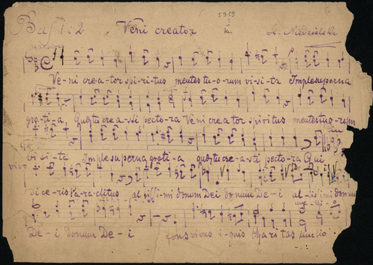 Veni creator
1913
A.
Ve-ni cre-a-tor spi-ri-tus mentes tu-o-rum vi-si-ta Imple superna
gra-ti-a, Quae tu cre-a-sti pecto-ra Ve-ni cre-a-tor spiritus mentes tuo-rum
vi-si-ta Imple superna grati-a quae tu cre-a-sti pecto-ra Qui
di-ce-ris Pa-ra-clitus al-tissi-mi donum De-i donum De-i al-tis- donum
De-i donum De-i fons vivus i-gnis Charitas